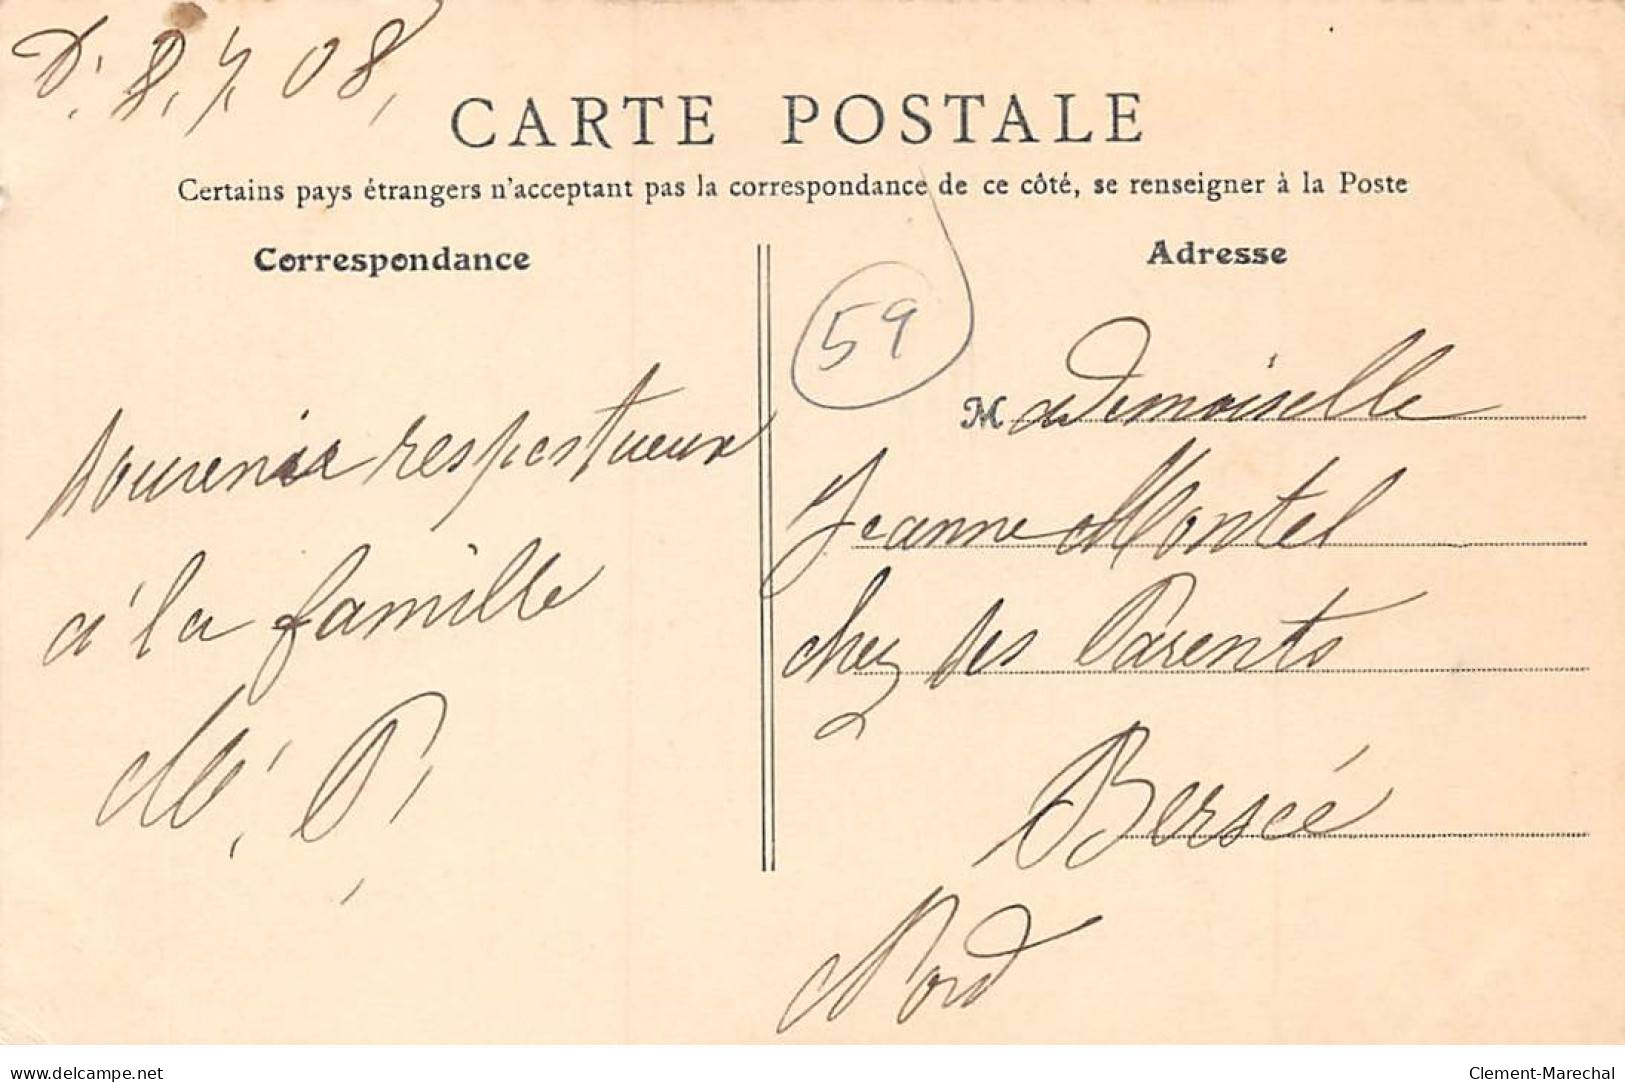 D. 8. 7. 08.
CARTE POSTALE
Certains pays étrangers n'acceptant pas la correspondance de ce côté, se renseigner à la Poste
Correspondance
souvenir respectueux
à la famille
M. P.
Adresse
59
Mademoiselle
Jeanne Montel
chez ses Parents
Bersée
Nord
www.delcampe.net
Clement-Marechal